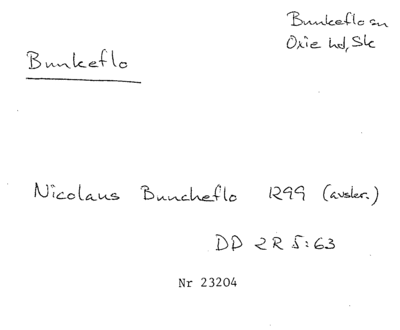 Bunkeflo sn
Oxie hd, Sk
Bunkeflo
Nicolaus Buncheflo 1299 (avskr.)
DD 2R 5:63
Nr 23204